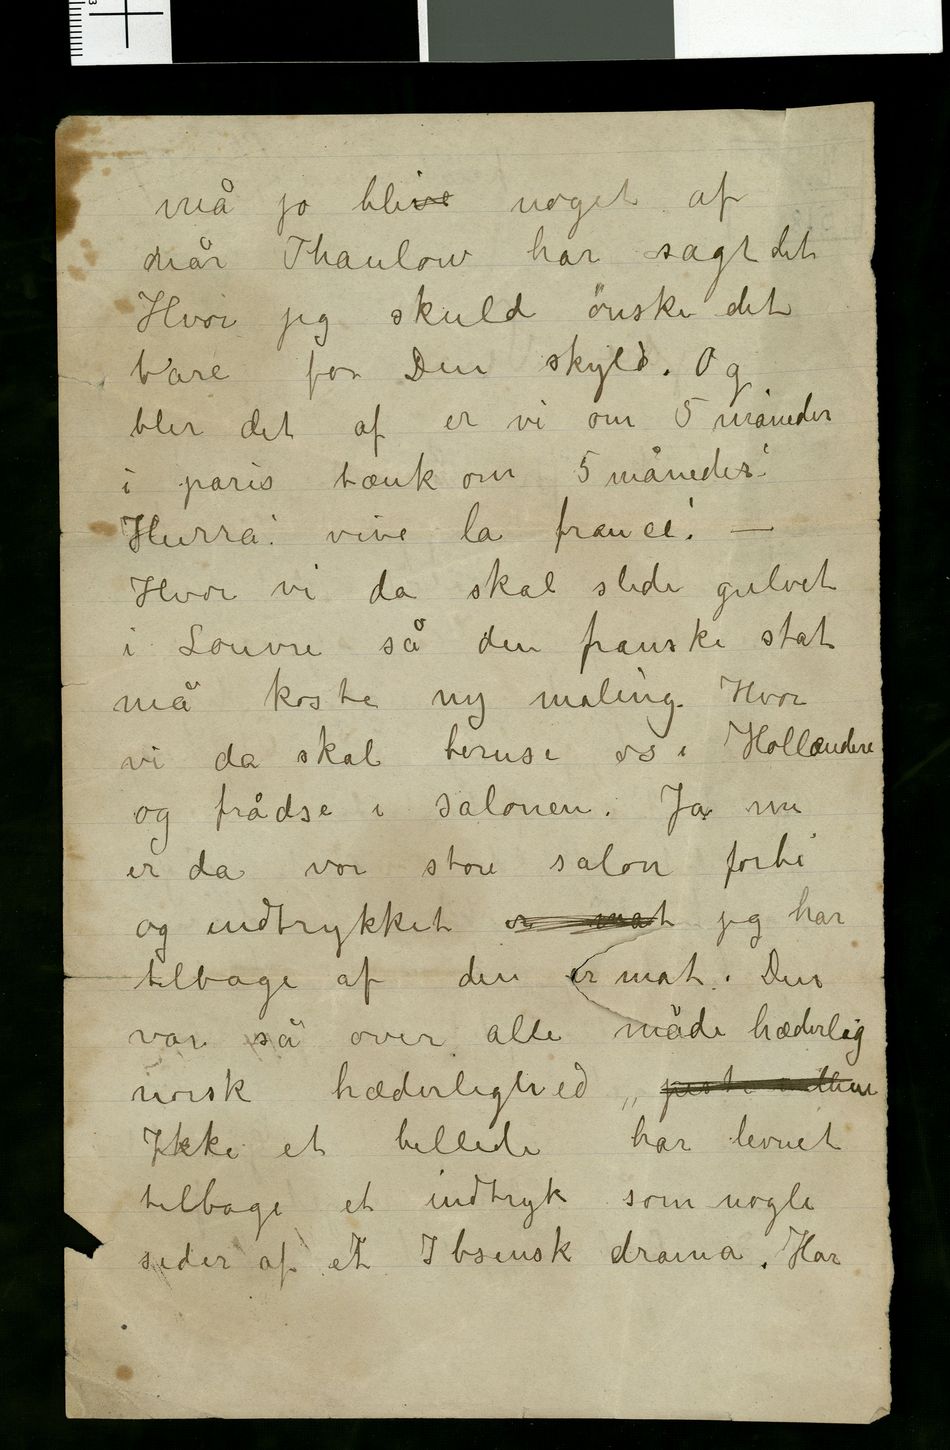 må jo blive noget af
når Thaulow har sagt det
Hvor jeg skuld ønske det
bare for Din skyld. Og
blir det af er vi om 5 måneder
i paris tænk om 5 måneder!
Hurra! vive la france! —
Hvor vi da skal slide gulvet
i Louvre så den franske stat
må koste ny maling. Hvor
vi da skal beruse os i Hollændere
og frådse i salonen. Ja nu
er da vor store salon forbi
og indtrykket er mat jeg har
tilbage af den er mat. Den
var så over alle måde hæderlig
norsk hæderlighed „
Ikke et billede har levnet
tilbage et indtryk som nogle
sider af et Ibsensk drama. Har